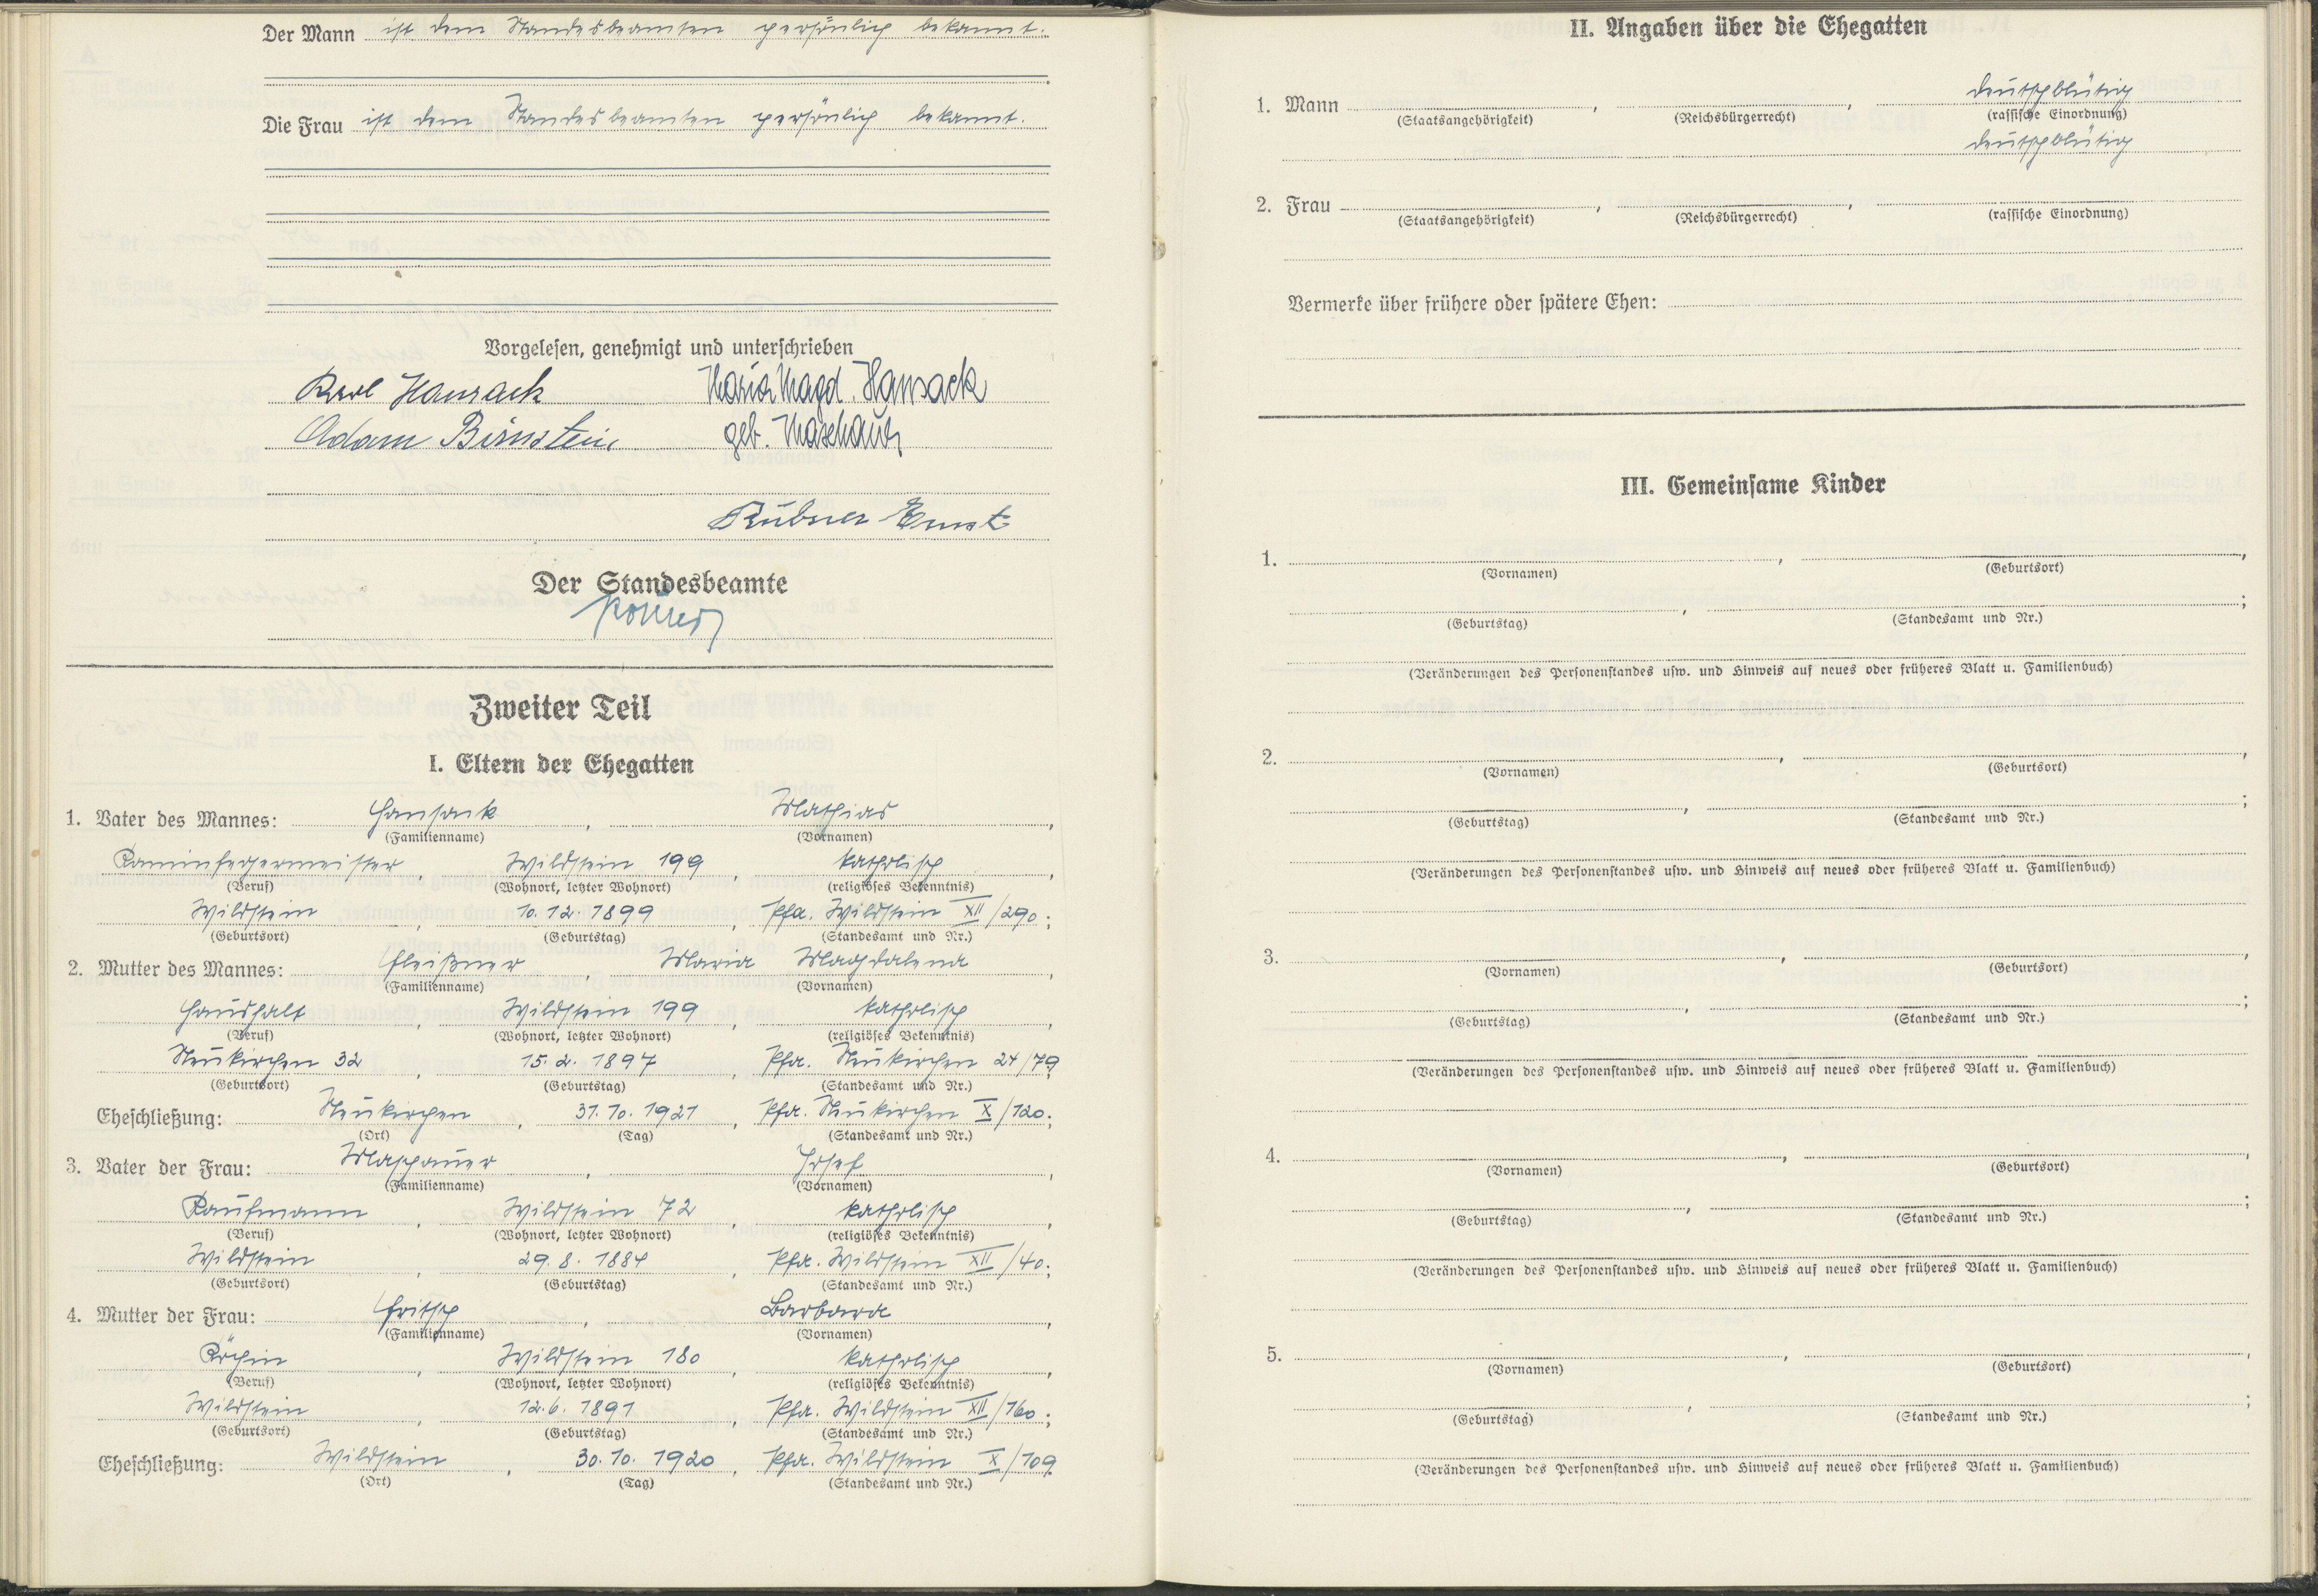 Der Mann ist dem Standesbeamten persönlich bekannt.
Die Frau ist dem Standesbeamten persönlich bekannt.
Vorgelesen, genehmigt und unterschrieben
Karl Hansack Maria Magd. Hansack
Adam Birnstein geb. Maschauer
Rubner Ernst
Der Standesbeamte
Zweiter Teil
I. Eltern der Ehegatten
1. Vater des Mannes: Hansack, Mathias,
(Familienname) (Vornamen)
Kaminfegermeister, Wildstein 199, katholisch,
(Beruf) (Wohnort, letzter Wohnort) (religiöses Bekenntnis)
Wildstein, 10.12.1899, Pfa. Wildstein XII/290;
(Geburtsort) (Geburtstag) (Standesamt und Nr.)
2. Mutter des Mannes: Fleißner, Maria Magdalena,
(Familienname) (Vornamen)
Haushalt, Wildstein 199, katholisch,
(Beruf) (Wohnort, letzter Wohnort) (religiöses Bekenntnis)
Neukirchen 32, 15.2.1897, Pfa. Neukirchen 24/79;
(Geburtsort) (Geburtstag) (Standesamt und Nr.)
Eheschließung: Neukirchen, 31.10.1921, Pfa. Neukirchen X/120;
(Ort) (Tag) (Standesamt und Nr.)
3. Vater der Frau: Maschauer, Josef,
(Familienname) (Vornamen)
Kaufmann, Wildstein 72, katholisch,
(Beruf) (Wohnort, letzter Wohnort) (religiöses Bekenntnis)
Wildstein, 29.8.1884, Pfa. Wildstein XII/40;
(Geburtsort) (Geburtstag) (Standesamt und Nr.)
4. Mutter der Frau: Fritsch, Barbara,
(Familienname) (Vornamen)
Köchin, Wildstein 180, katholisch,
(Beruf) (Wohnort, letzter Wohnort) (religiöses Bekenntnis)
Wildstein, 12.6.1891, Pfa. Wildstein XII/160;
(Geburtsort) (Geburtstag) (Standesamt und Nr.)
Eheschließung: Wildstein, 30.10.1920, Pfa. Wildstein X/109.
(Ort) (Tag) (Standesamt und Nr.)
II. Angaben über die Ehegatten
1. Mann , , deutschblütig
(Staatsangehörigkeit) (Reichsbürgerrecht) (rassische Einordnung)
deutschblütig
2. Frau , ,
(Staatsangehörigkeit) (Reichsbürgerrecht) (rassische Einordnung)
Vermerke über frühere oder spätere Ehen:
III. Gemeinsame Kinder
1. , ,
(Vornamen) (Geburtsort)
, ;
(Geburtstag) (Standesamt und Nr.)
(Veränderungen des Personenstandes usw. und Hinweis auf neues oder früheres Blatt u. Familienbuch)
2. , ,
(Vornamen) (Geburtsort)
, ;
(Geburtstag) (Standesamt und Nr.)
(Veränderungen des Personenstandes usw. und Hinweis auf neues oder früheres Blatt u. Familienbuch)
3. , ,
(Vornamen) (Geburtsort)
, ;
(Geburtstag) (Standesamt und Nr.)
(Veränderungen des Personenstandes usw. und Hinweis auf neues oder früheres Blatt u. Familienbuch)
4. , ,
(Vornamen) (Geburtsort)
, ;
(Geburtstag) (Standesamt und Nr.)
(Veränderungen des Personenstandes usw. und Hinweis auf neues oder früheres Blatt u. Familienbuch)
5. , ,
(Vornamen) (Geburtsort)
, ;
(Geburtstag) (Standesamt und Nr.)
(Veränderungen des Personenstandes usw. und Hinweis auf neues oder früheres Blatt u. Familienbuch)